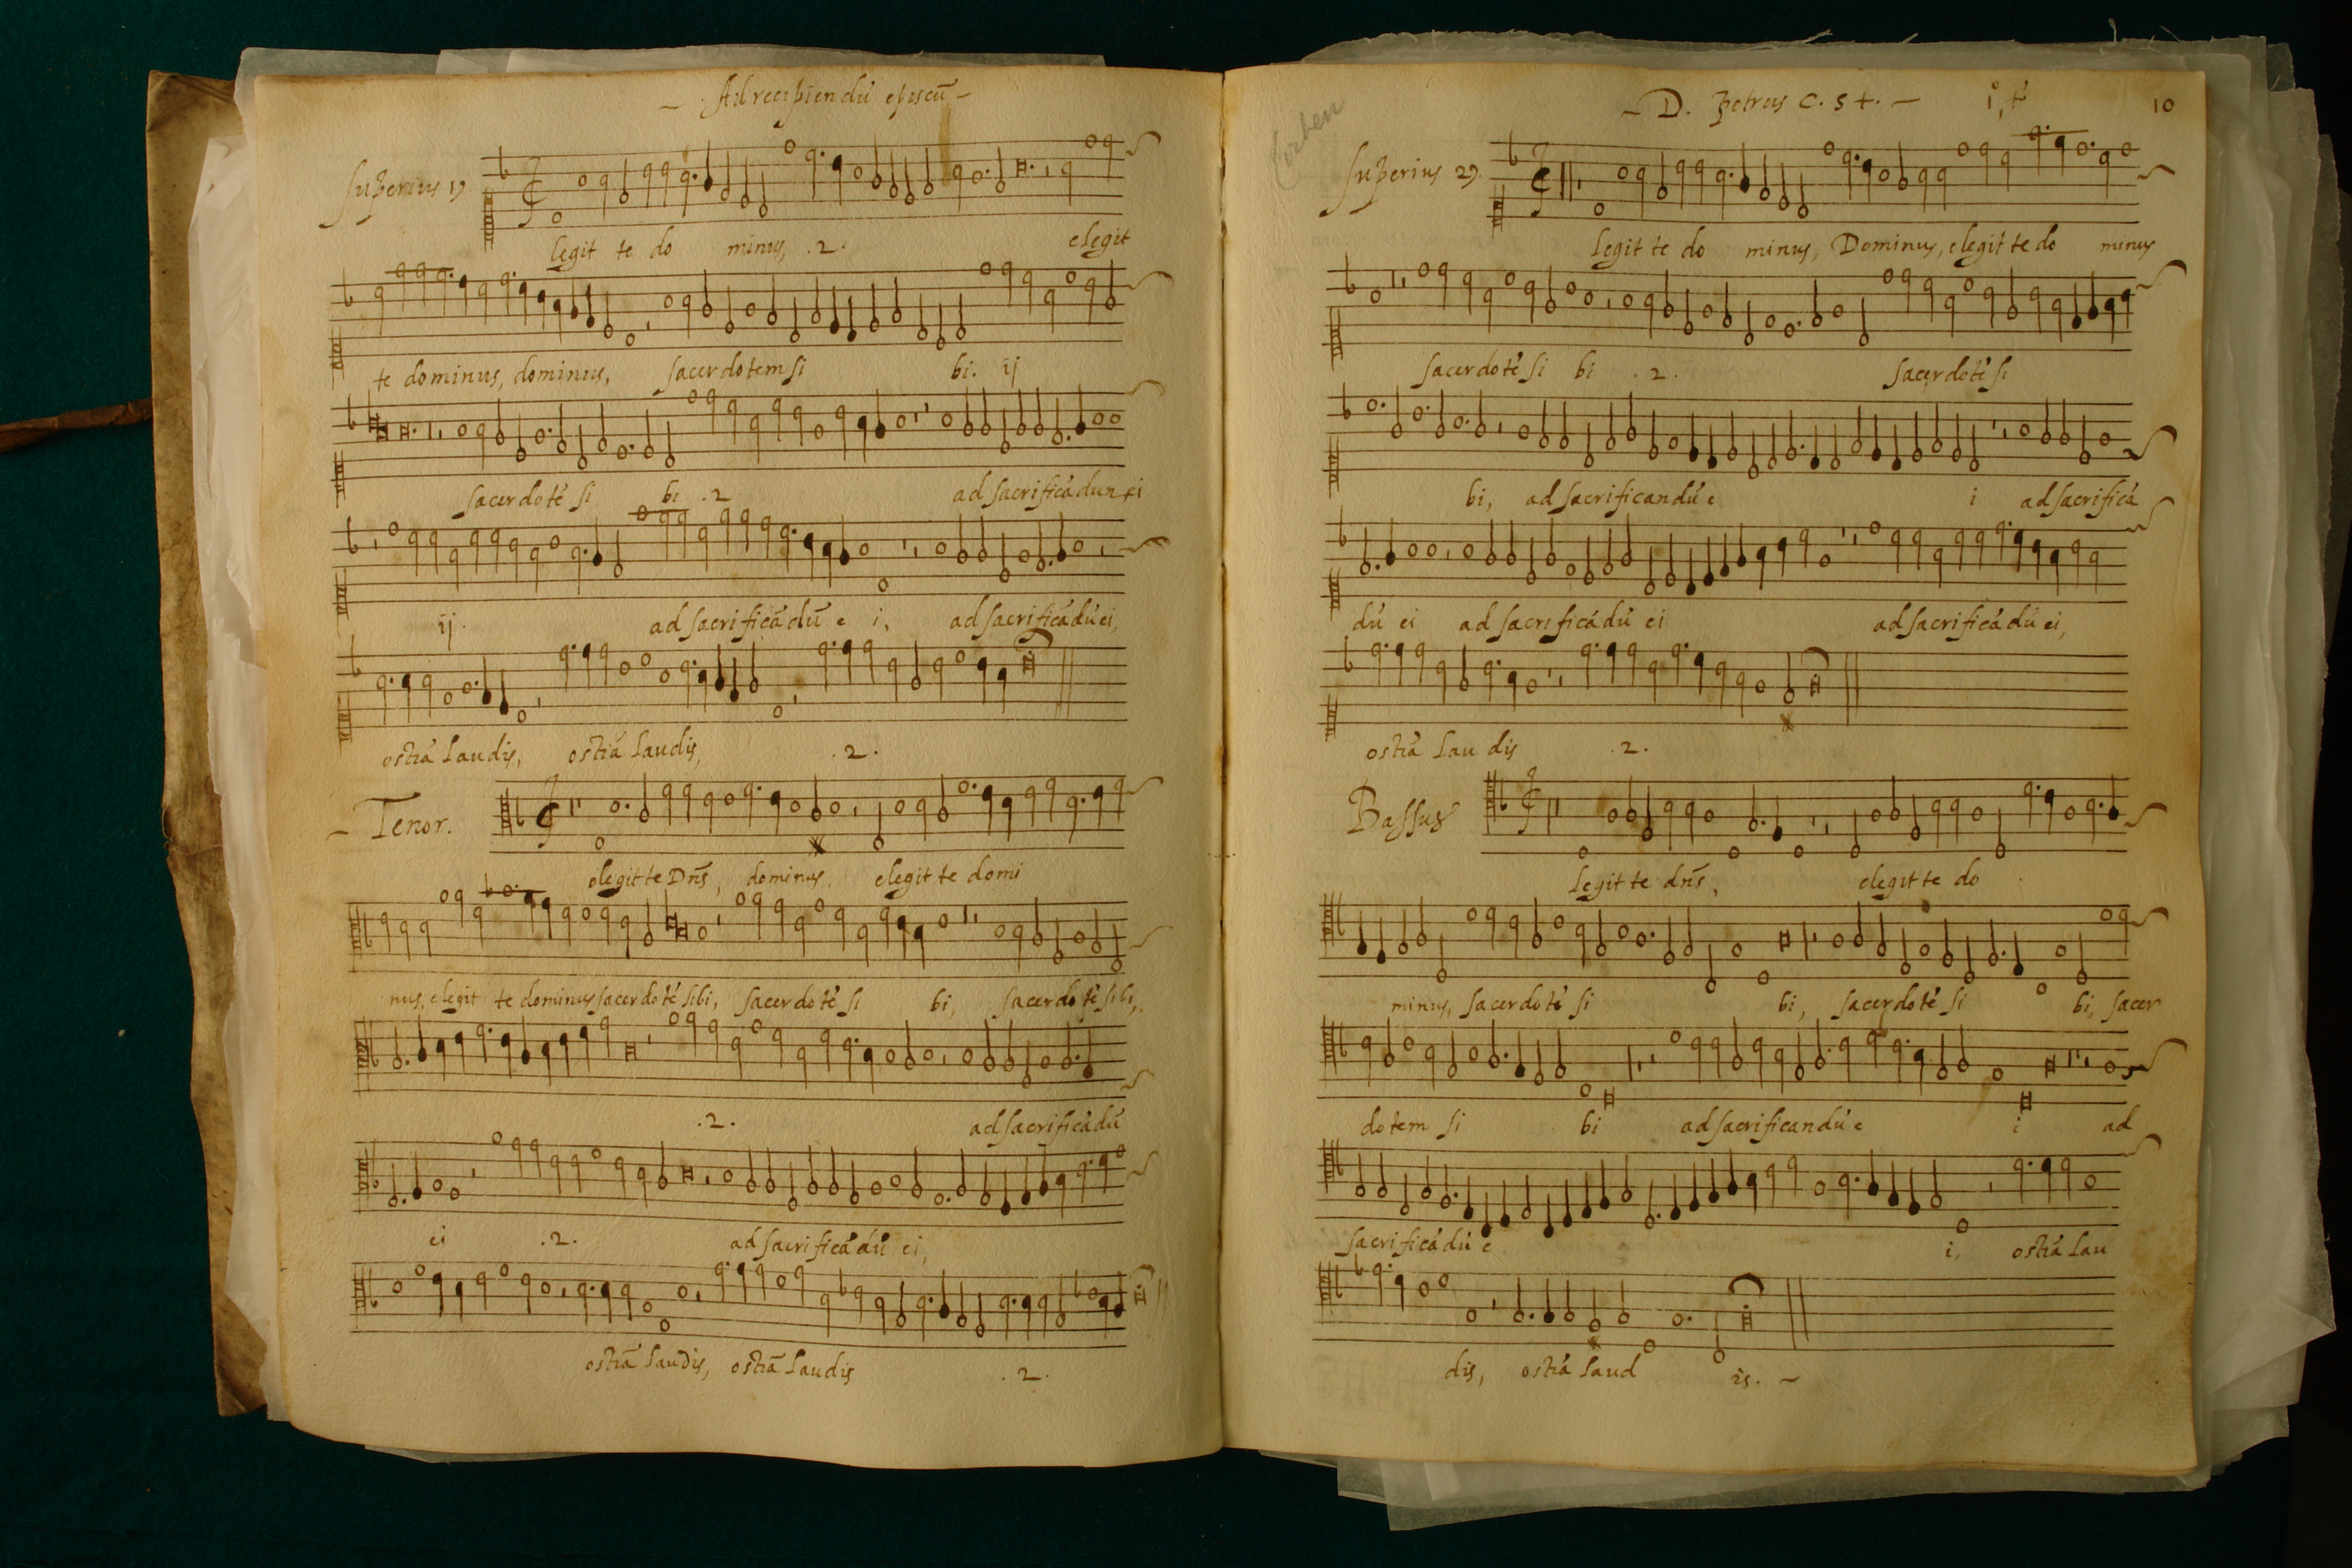 Ad recipiendū episcū
Superius 1º
legit te do minus, .2. elegit
te dominus, dominus, sacerdotem si bi. ij
sacerdotē si bi .2 ad sacrificādum ei
ij. ad sacrificādū e i, ad sacrificādū ei,
ostiā laudis, ostiā laudis, .2.
Tenor.
elegit te Dn̄s, dominus, elegit te domi
nus, elegit te dominus sacerdotē sibi, sacerdotē si bi, sacerdotē sibi,
.2. ad sacrificādū
ei .2. ad sacrificādū ei,
ostiā laudis, ostiā laudis .2.
D. Petrus C. S t. 10
Superius 2º.
legit te do minus, Dominus, elegit te do minus
sacerdotē si bi .2. sacerdotē si
bi, ad sacrificandū e i ad sacrificā
dū ei ad sacrificādū ei ad sacrificādū ei,
ostiā lau dis .2.
Bassus
legit te dn̄s, elegit te do
minus, sacerdotē si bi, sacerdotē si bi, sacer
dotem si bi ad sacrificandū e i ad
sacrificādū e i, ostiā lau
dis, ostiā laud is.